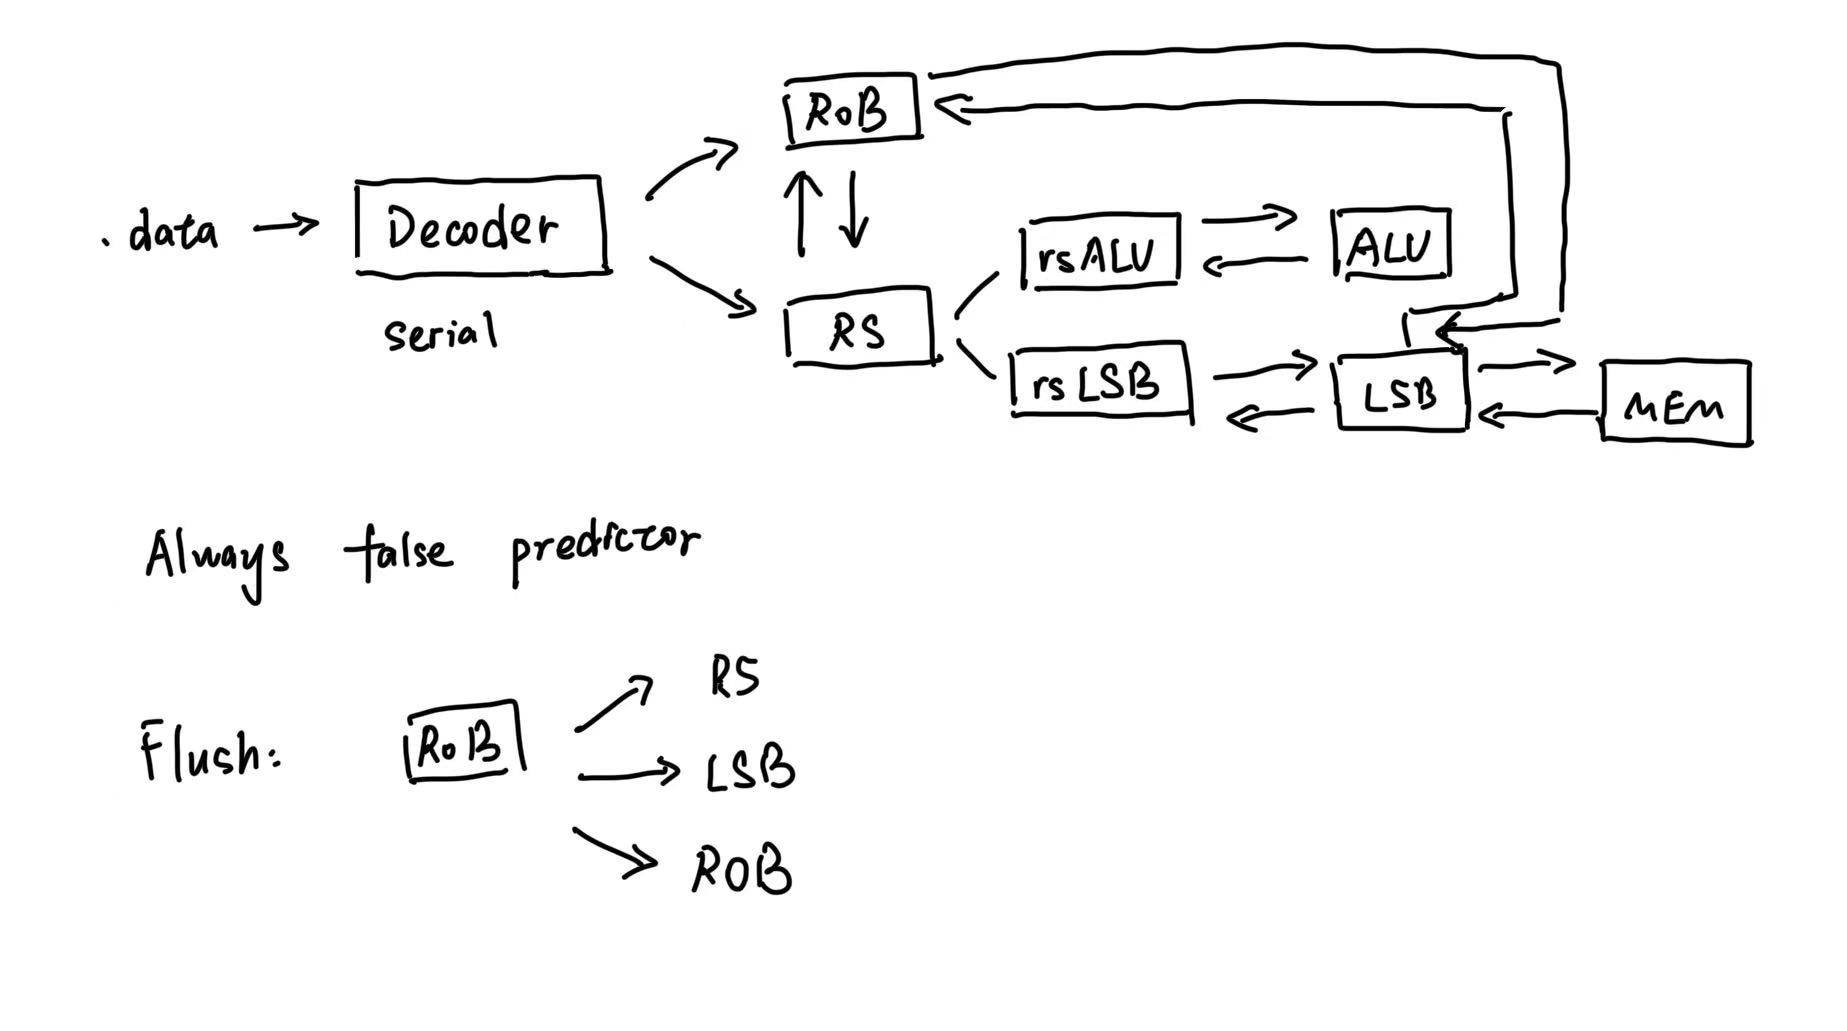 RoB
.data
Decoder
serial
rsALU
ALU
RS
rsLSB
LSB
MEM
Always false predictor
Flush:
RoB
RS
LSB
ROB